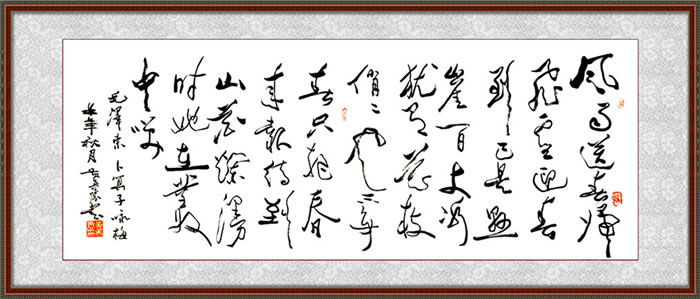 风雨送春归
飞雪迎春
到已是悬
崖百丈冰
犹有花枝
俏〻也不争
春只把春
来报待到
山花烂漫
时她在丛
中笑
毛泽东卜算子咏梅
年秋月